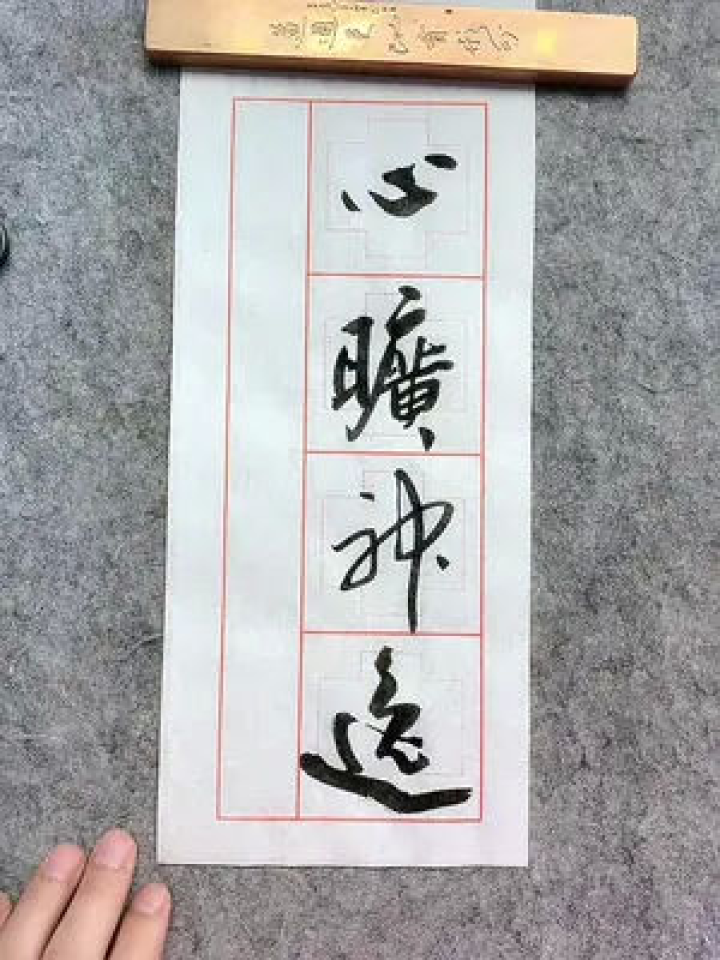 心曠神逸